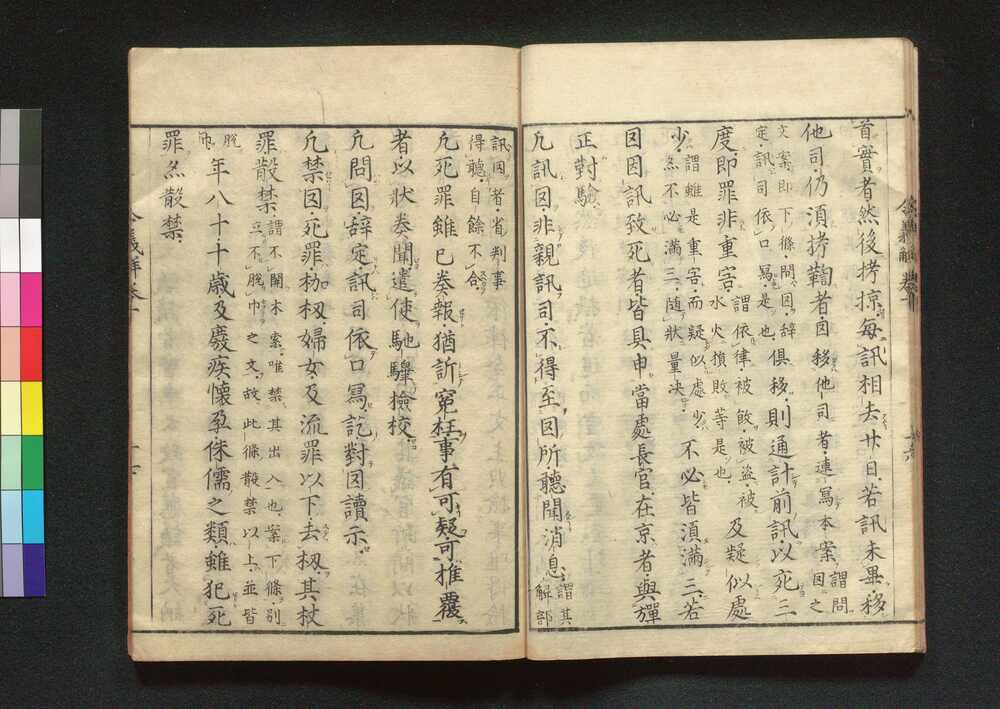 首實者然後拷掠每訊相去廿日若訊未畢移
他司仍須拷鞫者囚移他司者連寫本案 謂問囚之
文案即下條問囚辭定訊司依口寫是也 俱移則通計前訊以死三
度即罪非重害 謂依律被毆被盜被水火損敗等是也 及疑似處
少 謂雖是重害而疑似處少亦不必滿三隨狀量決 不必皆須滿三若
囚因訊致死者皆具申當處長官在京者與彈
正對驗
凡訊囚非親訊司不得至囚所聽聞消息 謂其解部
訊囚者省判事得聽自餘不合
凡死罪雖已奏報猶訴冤枉事有可疑可推覆
者以狀奏聞遣使馳驛撿校
凡問囚辞定訊司依口寫訖對囚讀示
凡禁囚死罪枷杻婦女及流罪以下去杻其杖
罪散禁 謂不關木索唯禁其出入也案下條別立不脫巾之文故此條散禁以上並皆
脫巾 年八十十歳及癈疾懷孕侏儒之類雖犯死
罪亦散禁